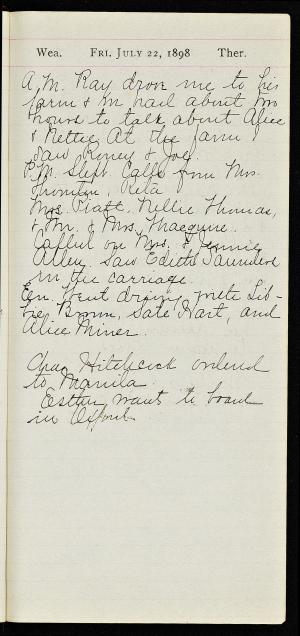 Wea. FRI. JULY 22, 1898 Ther.
A.M. Ray drove me to his
farm & we had about two
hours to talk about Alice
& Nettie. At the farm
saw Roney & Joe.
P.M. Slept. Calls from Mrs.
Thornton, Reta
Mrs. Pratt, Nellie Thomas,
& Mr. & Mrs.
Called on Mrs. & Jennie
Allen. Saw Edith Saunders
in the carriage.
Ev. Went driving with Lib-
bie Brown, Sate Hart, and
Alice Miner.
Chas Hitchcock ordered
to Manila.
Esther wants to board
in Oxford.